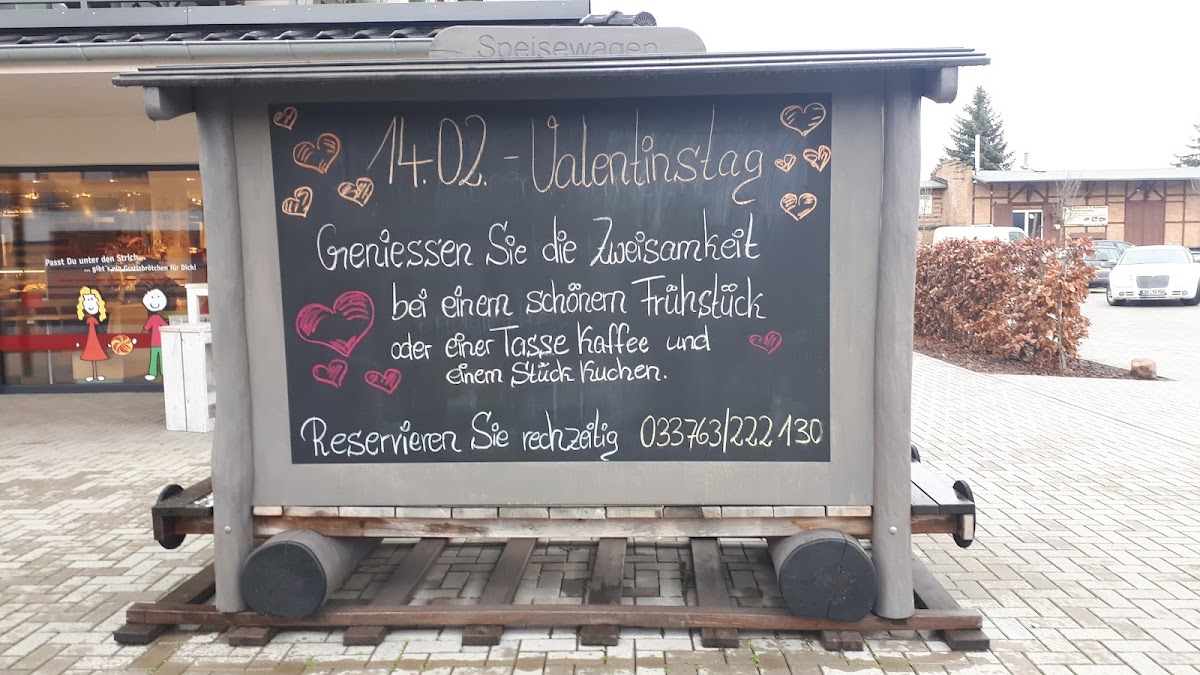 Speisewagen
14.02. - Valentinstag
Geniessen Sie die Zweisamkeit
bei einem schönem Frühstück
oder einer Tasse Kaffee und
einem Stück Kuchen.
Reservieren Sie rechzeitig 033763/222 130
Passt Du unter den Strich...
... gibt's ein Gratisbrötchen für Dich!